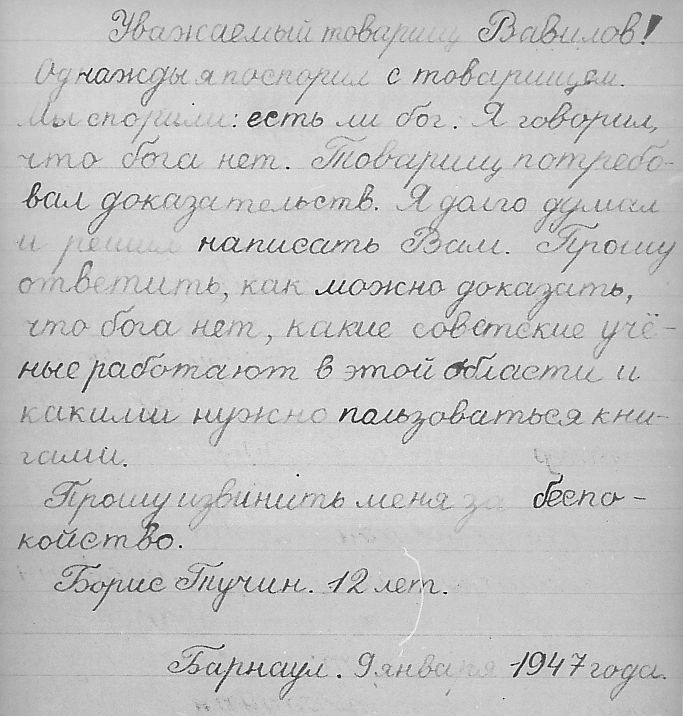 Уважаемый товарищ Вавилов!
Однажды я поспорил с товарищем.
Мы спорили: есть ли бог. Я говорил,
что бога нет. Товарищ потребо-
вал доказательств. Я долго думал
и решил написать Вам. Прошу
ответить, как можно доказать,
что бога нет, какие советские учё-
ные работают в этой области и
какими нужно пользоваться кни-
гами.
Прошу извинить меня за беспо-
койство.
Борис Тучин. 12 лет.
Барнаул. 9 января 1947 года.